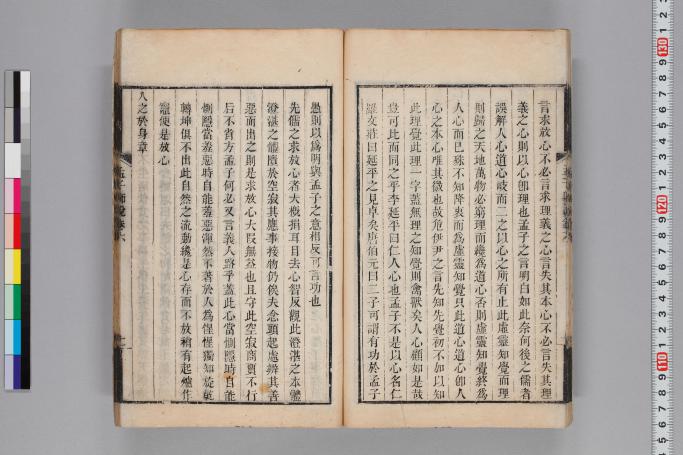 言求放心不必言求理義之心言失其本心不必言失其理
義之心則以心卽理也孟子之言明白如此奈何後之儒者
誤解人心道心歧而二之以心之所有止此虛靈知覺而理
則歸之天地萬物必窮理而纔為道心否則虛靈知覺終為
人心而已殊不知降衷而為虛靈知覺只此道心道心卽人
心之本心唯其微也故危伊尹之言先知先覺初不加以知
此理覺此理一字蓋無理之知覺則禽獸矣人心顧如是哉
豈可比而同之乎李延平曰仁人心也孟子不是以心名仁
羅文莊曰延平之見卓矣唐伯元曰二子可謂有功於孟子
愚則以為明與孟子之意相反可言功也
先儒之求放心者大概捐耳目去心智反觀此澄湛之本體
澄湛之體墮於空寂其應事接物仍俟夫念頭起處辨其善
惡而出之則是求放心大段無益也且守此空寂商賈不行
后不省方孟子何必又言義人路乎蓋此心當惻隱時自能
惻隱當羞惡時自能羞惡渾然不著於人為惺惺獨知旋乾
轉坤俱不出此自然之流動纔是心存而不放稍有起爐作
竈便是放心
人之於身章
孟子師說卷六